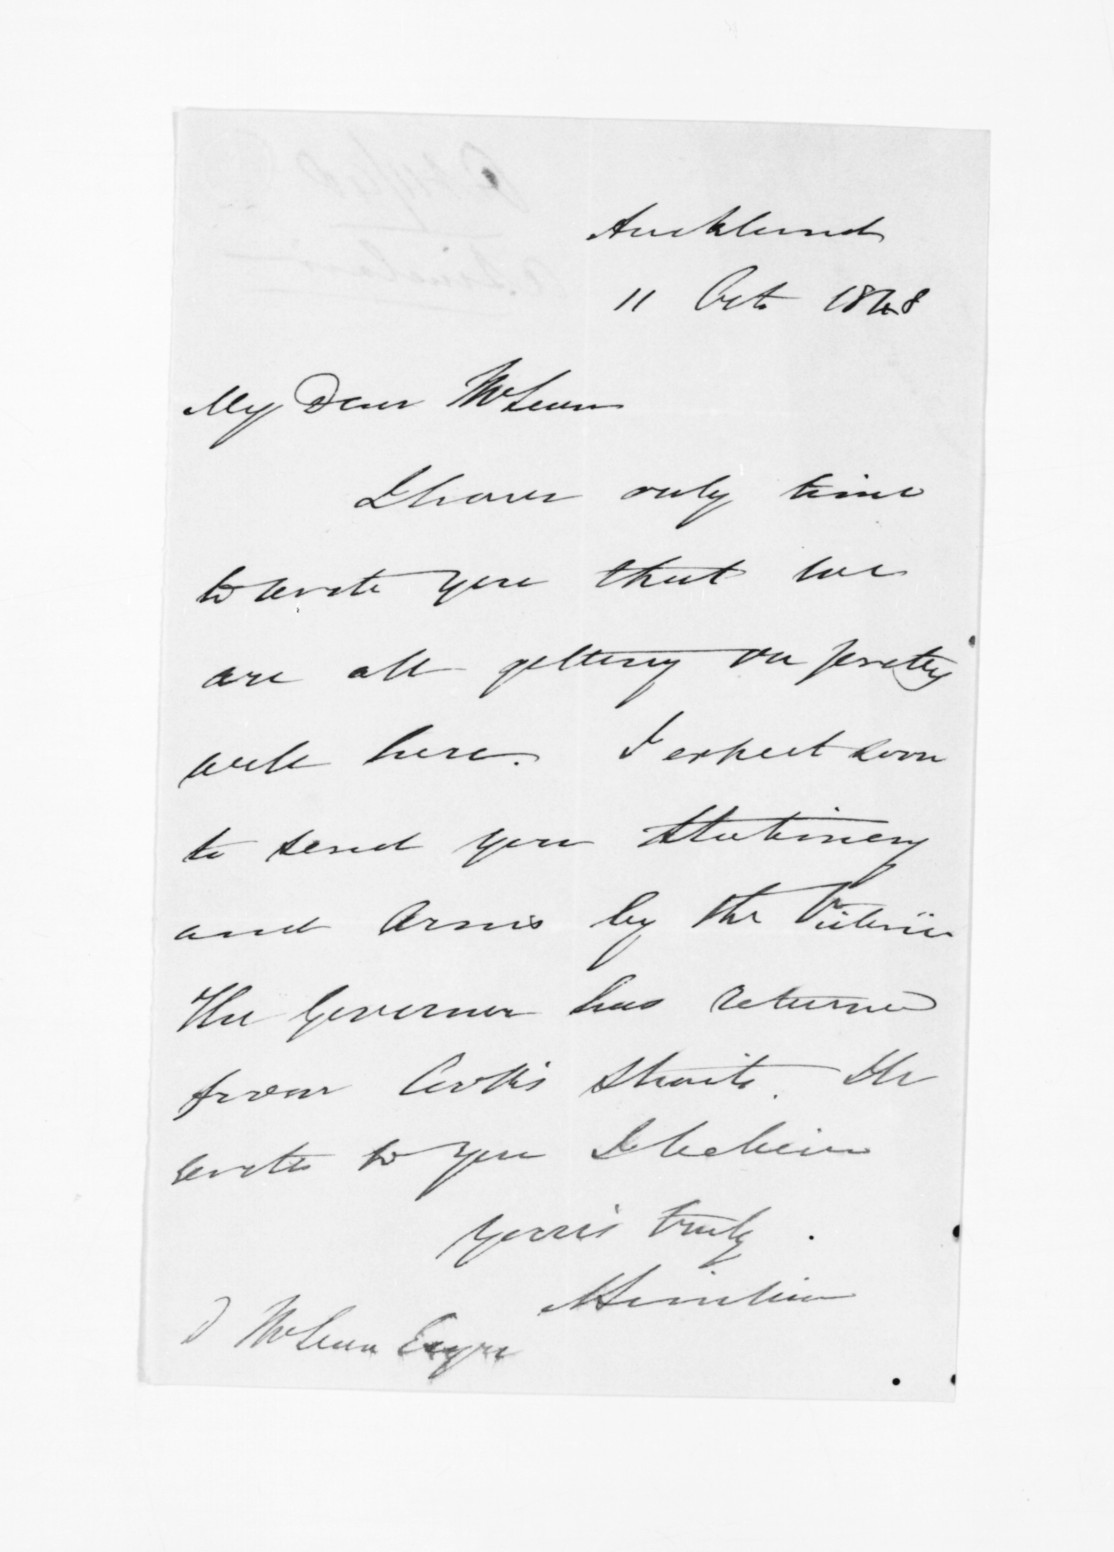 Auckland
11 Oct 1848
My Dear McLean
I have only time
to write you that we
are all getting on pretty
well here. I expect soon
to send you Stationery
and Arms by the Victoria
The Governor has returned
from Cook's Straits. He
wrote to you I believe
yours truly.
A Sinclair
D McLean Esqre